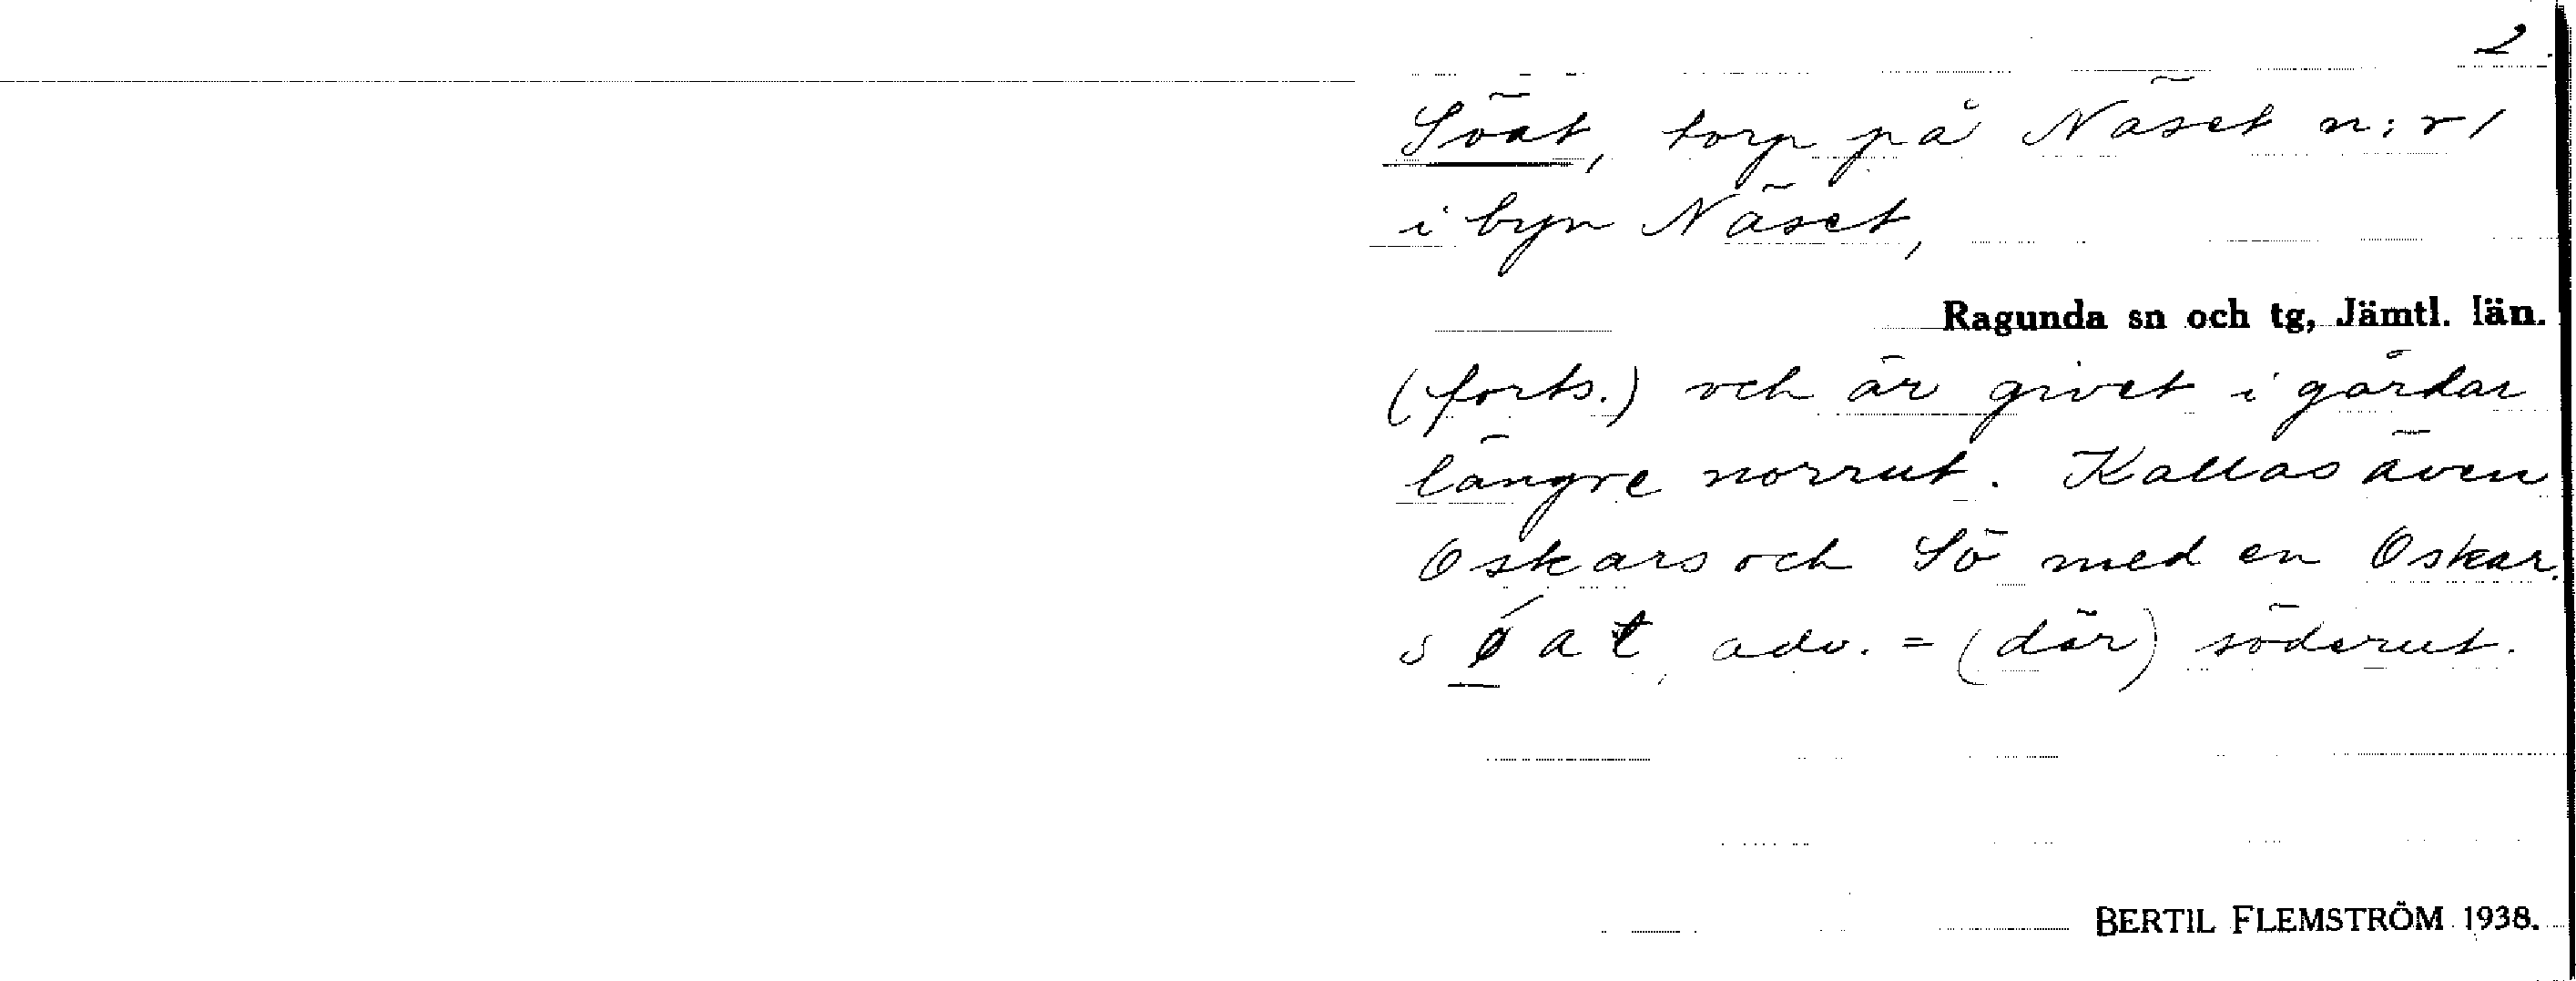 2.
Söat, torp på Näset n:r 1
i byn Näset,
Ragunda sn och tg, Jämtl. län.
(forts.) och är givet i gårdar
längre norrut. Kallas även
Oskars och Sö med en Oskar.
søat, adv. = (där) söderut.
BERTIL FLEMSTRÖM 1938.